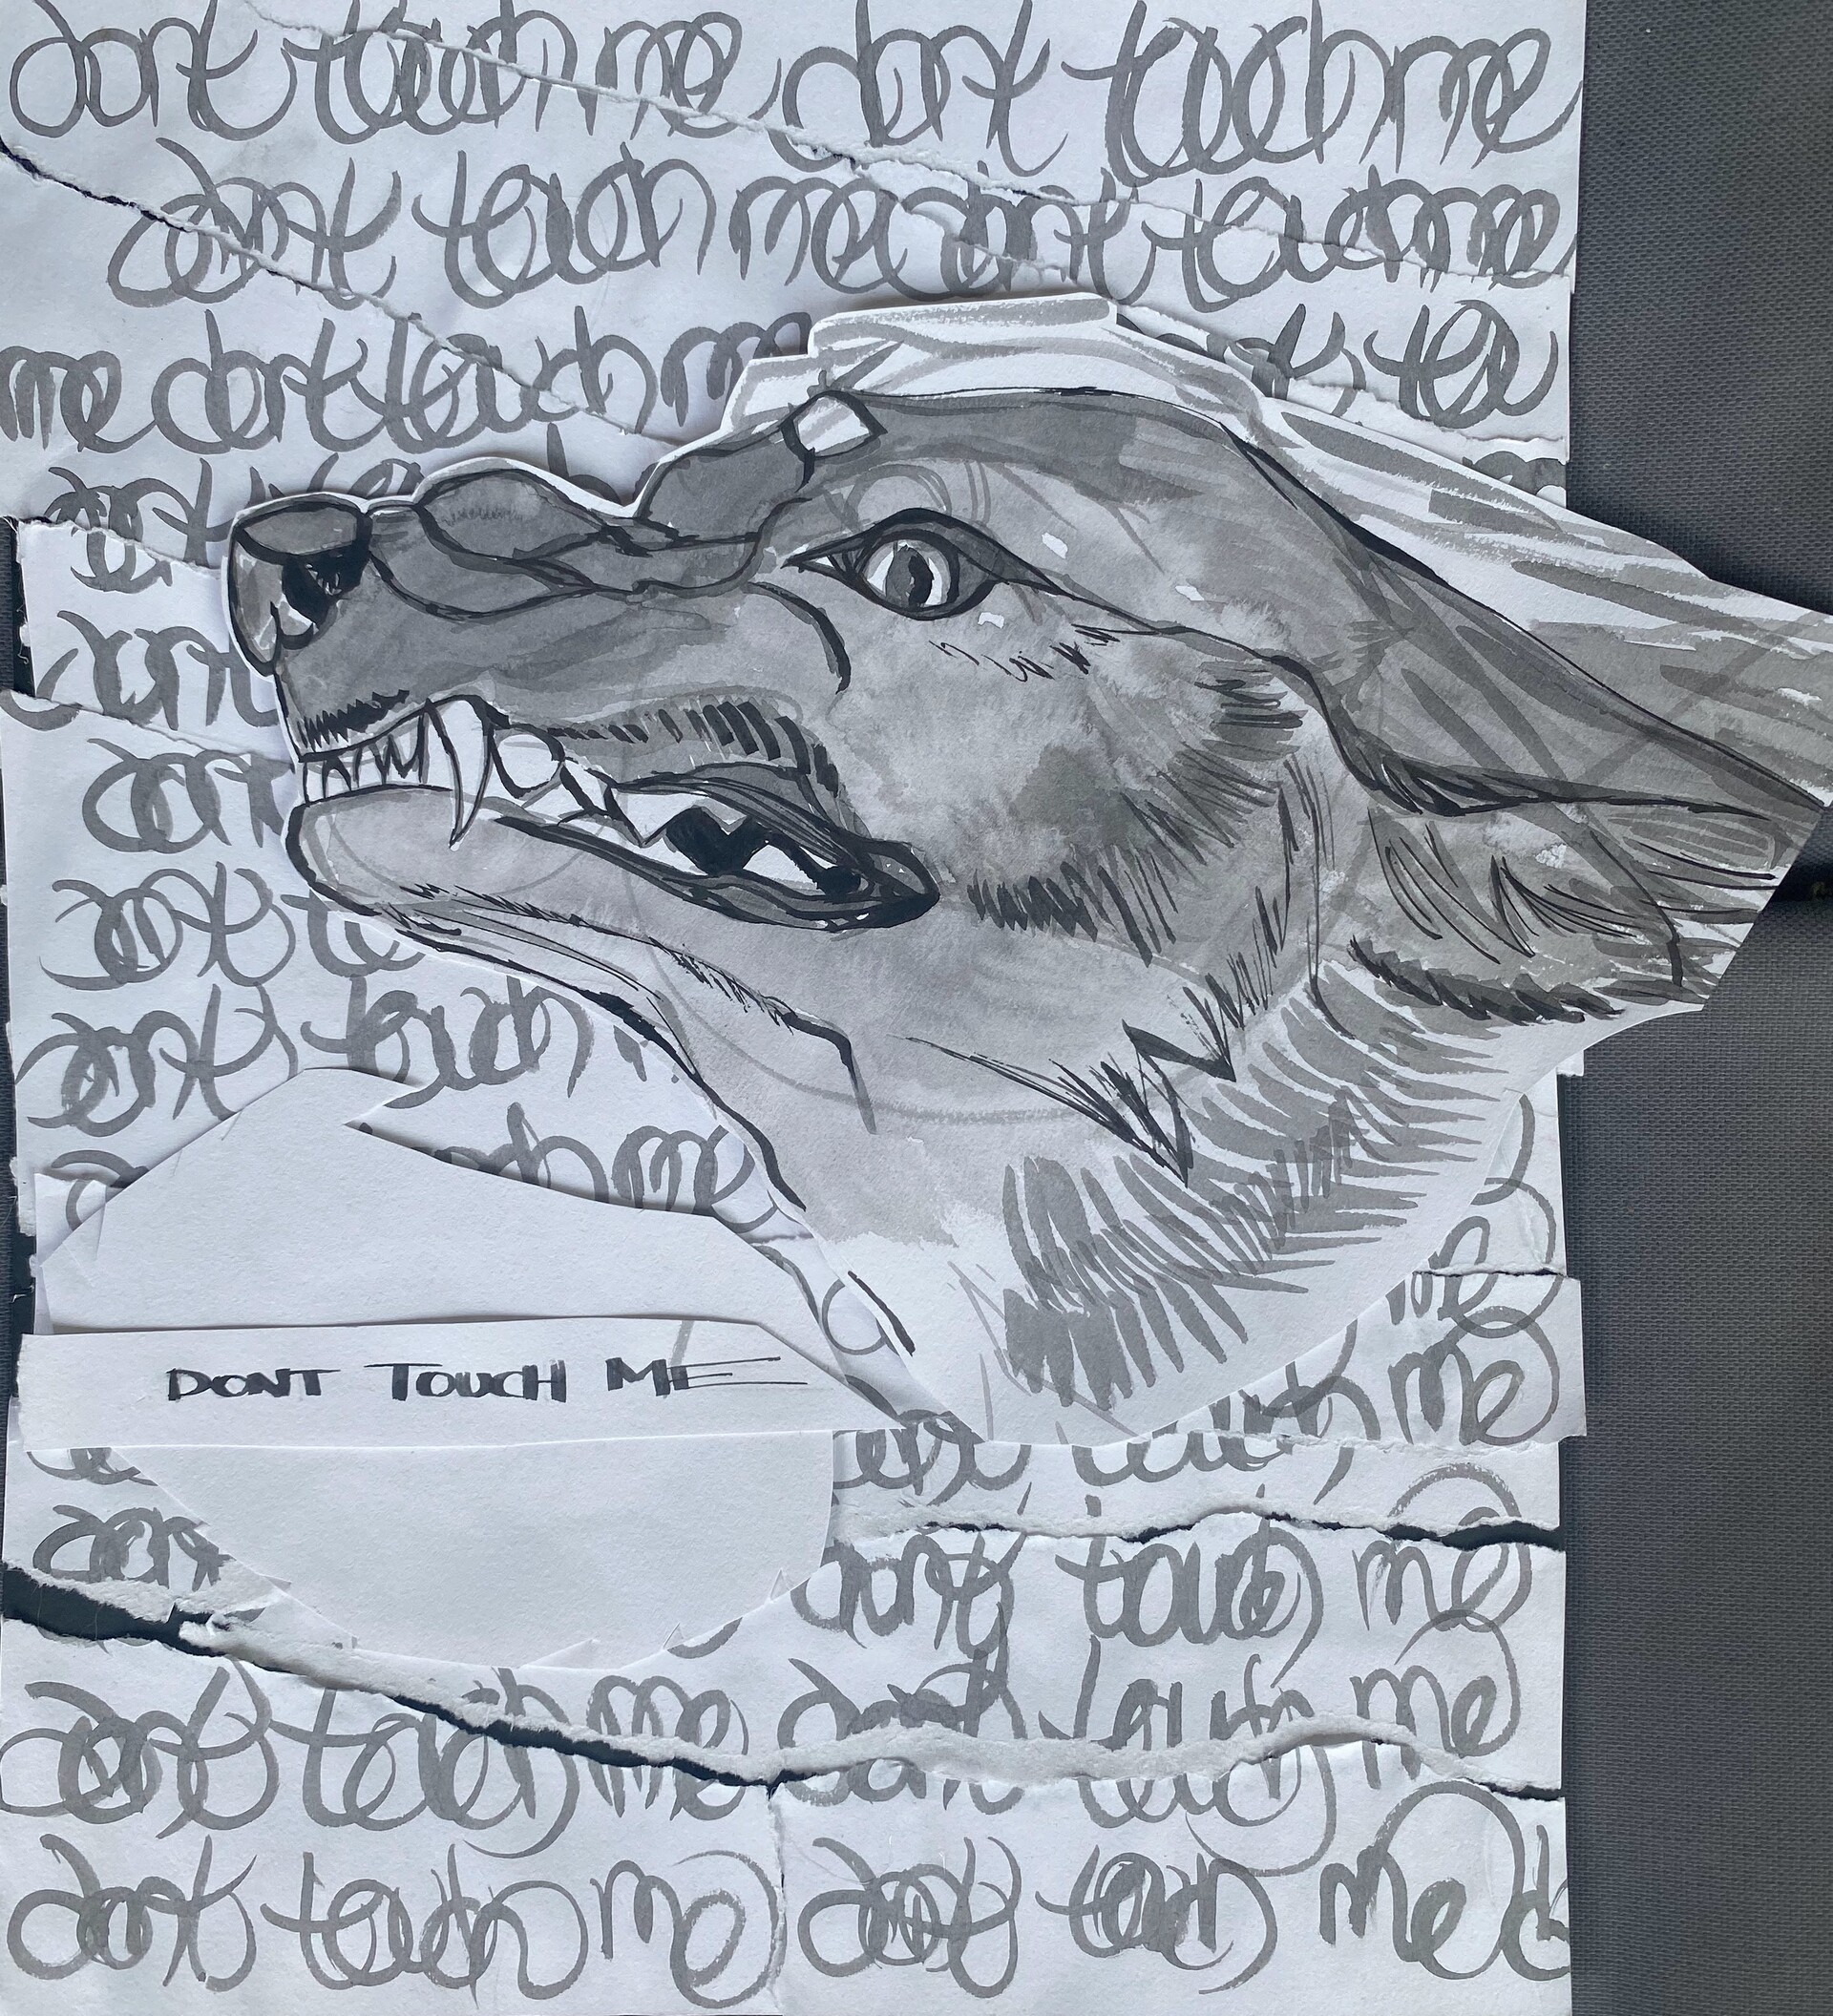 dont touch me dont touch me
dont touch me dont touch me
me dont touch me
dont
dont
dont
dont to
dont touch
touch me
me
me
DONT TOUCH ME
touch me
dont touch me
dont touch me dont touch me
dont touch me dont touch me d